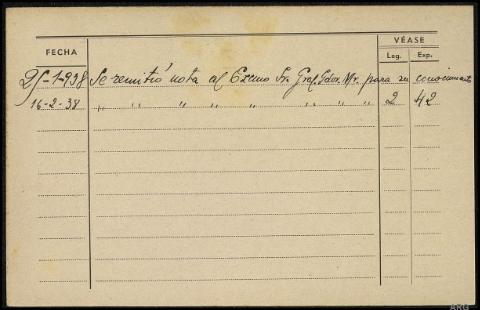 VÉASE
FECHA
Leg. Exp.
25-1-938 Se remitió nota al Excmo Sr. Gral. Gdor. Mr. para su conocimiento
16-2-38 " " " " " " " " " 2 42
ARG